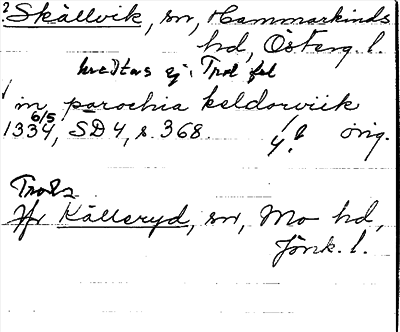 2 Skällvik, sn, Hammarkinds
hd, Österg. l.
hvedtas ej. Trol fel
in parochia keldorwiik
6/5
1334, SD 4, s. 368. 4? orig.
Trol.
Jfr Källeryd, sn, Mo hd,
Jönk. l.